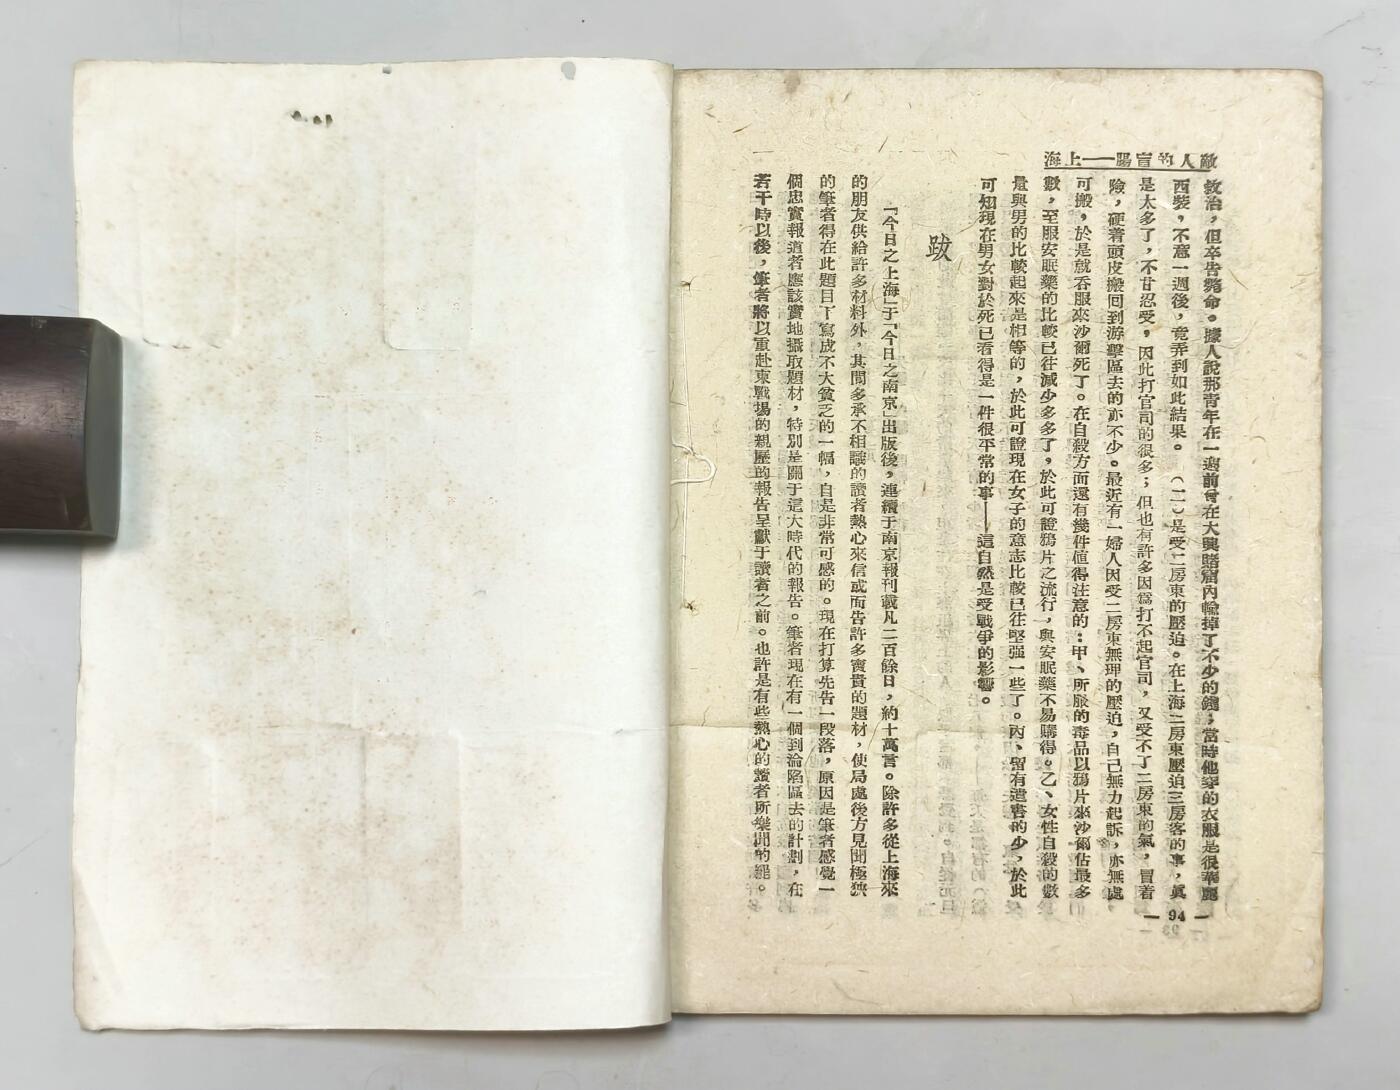 敵人的盲腸——上海
救治，但卒告斃命。據人說那青年在一週前曾在大興賭窟內輸掉了不少的錢；當時他穿的衣服是很華麗
西裝，不意一週後，竟弄到如此結果。（二）是受二房東的壓迫。在上海二房東壓迫三房客的事，眞
是太多了，不甘忍受，因此打官司的很多；但也有許多因爲打不起官司，又受不了二房東的氣，冒着
險，硬着頭皮搬回到游擊區去的亦不少。最近有一婦人因受二房東無理的壓迫，自己無力起訴，亦無處
可搬，於是就吞服來沙爾死了。在自殺方面還有幾件値得注意的：甲、所服的毒品以鴉片來沙爾佔最多
數，至服安眠藥的比較已往減少多多了，於此可證鴉片之流行，與安眠藥不易購得。乙、女性自殺的數
量與男的比較起來是相等的，於此可證現在女子的意志比較已往堅强一些了。丙、留有遺書的少，於此
可知現在男女對於死已看得是一件很平常的事——這自然是受戰爭的影響。
跋
「今日之上海」于「今日之南京」出版後，連續于南京報刊載凡二百餘日，約十萬言。除許多從上海來
的朋友供給許多材料外，其間多承不相識的讀者熱心來信或面告許多寶貴的題材，使局處後方見聞極狹
的筆者得在此題目下寫成不大貧乏的一幅，自是非常可感的。現在打算先告一段落，原因是筆者感覺一
個忠實報道者應該實地攝取題材，特別是關于這大時代的報告。筆者現在有一個到淪陷區去的計劃，在
若干時以後，筆者將以重赴東戰場的親歷的報告呈獻于讀者之前。也許是有些熱心的讀者所樂聞的罷。
— 94 —